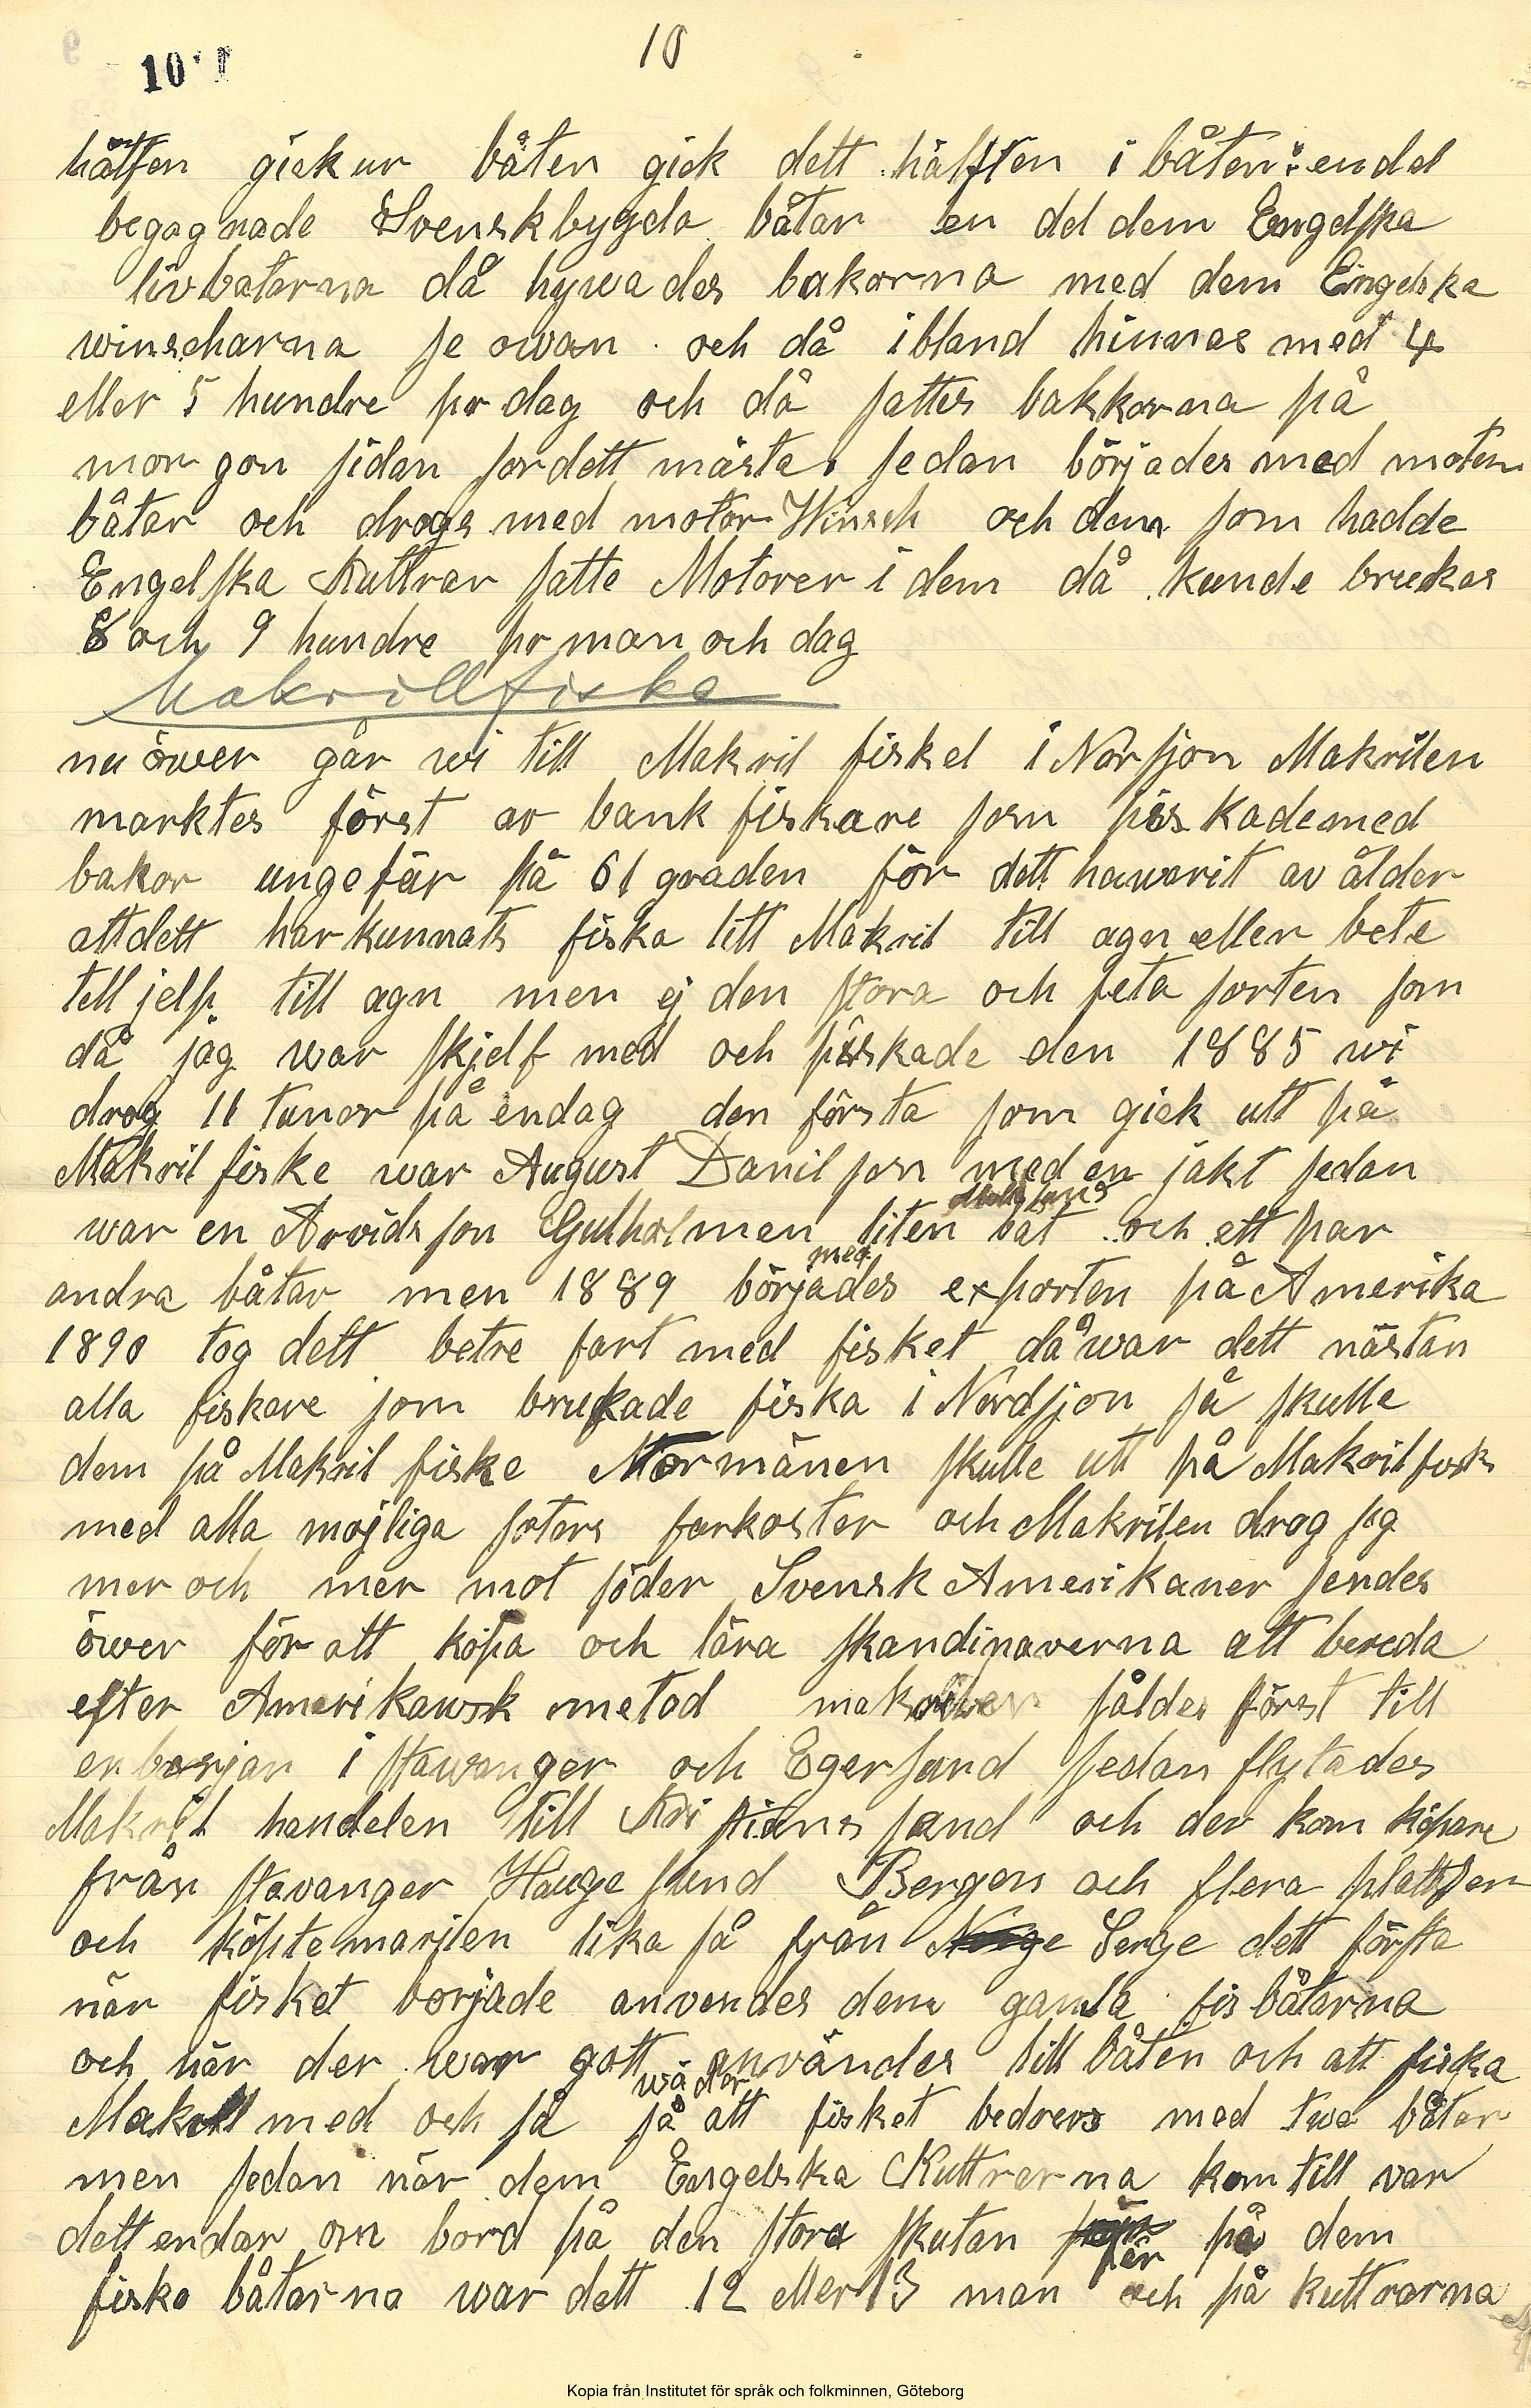 10
10
hälften gick ur båten gick dett hälften i båten: endel
begagnade Svenskbygda båtar en del dem Engelska
livbåtarna då hywades bakorna med dem Engelska
winscharna se owan och då ibland hinnas med 4
eller 5 hundre pr dag och då sattes bakkorna på
morgon sidan for dett mästa. sedan börjades med motorn
båtar och drogs med motor Winsch och dem som hadde
Engelska Kuttrar satte Motorer i dem då kunde brukas
8 och 9 hundre pr man och dag
Makrillfiske
nu öwer går wi till Makril fisket i Norsjon Makrilen
marktes först av bank fiskare som fisskade med
bakor ungefär på 61 graden för dett hawarit av ålder
att dett har kunnats fiska litt Makril till agn eller bete
till jelp. till agn men ej den stora och feta sorten som
då jag war skjelf med och fisskade den 1885 wi
drog 11 tunor på endag den första som gick utt på
Makril fiske war August Danilson med en jakt sedan
war en Arvidsson Gulholmen liten båt och ett par
med
andra båtar men 1889 börjades exporten på Amerika
1890 tog dett betre fart med fisket då war dett nästan
alla fiskare som brukade fiska i Nordsjon så skulle
dem på Makril fiske Normänen skulle utt på Makrilfisk
med alla mojliga sotors farkoster och Makrilen drog sig
mer och mer mot söder Svensk Amerikaner sendes
öwer för att köpa och lära skandinaverna att bereda
efter Amerikawsk metod makrilen såldes först till
en borjan i stawanger och Egersund sedan flytades
Makril handelen till Kristians sand och der kom köpare
från stavanger Hauge sund Bergen och flera plattser
och köpte marjlen lika så från Norge Serge dett första
när fisket borjade anvendes dem gamla fisbåtarna
och när der war gott användes lill båten och att fiska
wäder
Makrill med och så så att fisket bedrevs med twå båtar
men sedan när dem Engelska Kuttrarna kom till var
dett endar om bord på den stora skutan på dem
för
fiske båtarna war dett 12 eller 13 man och på kuttrarna
Kopia från Institutet för språk och folkminnen, Göteborg